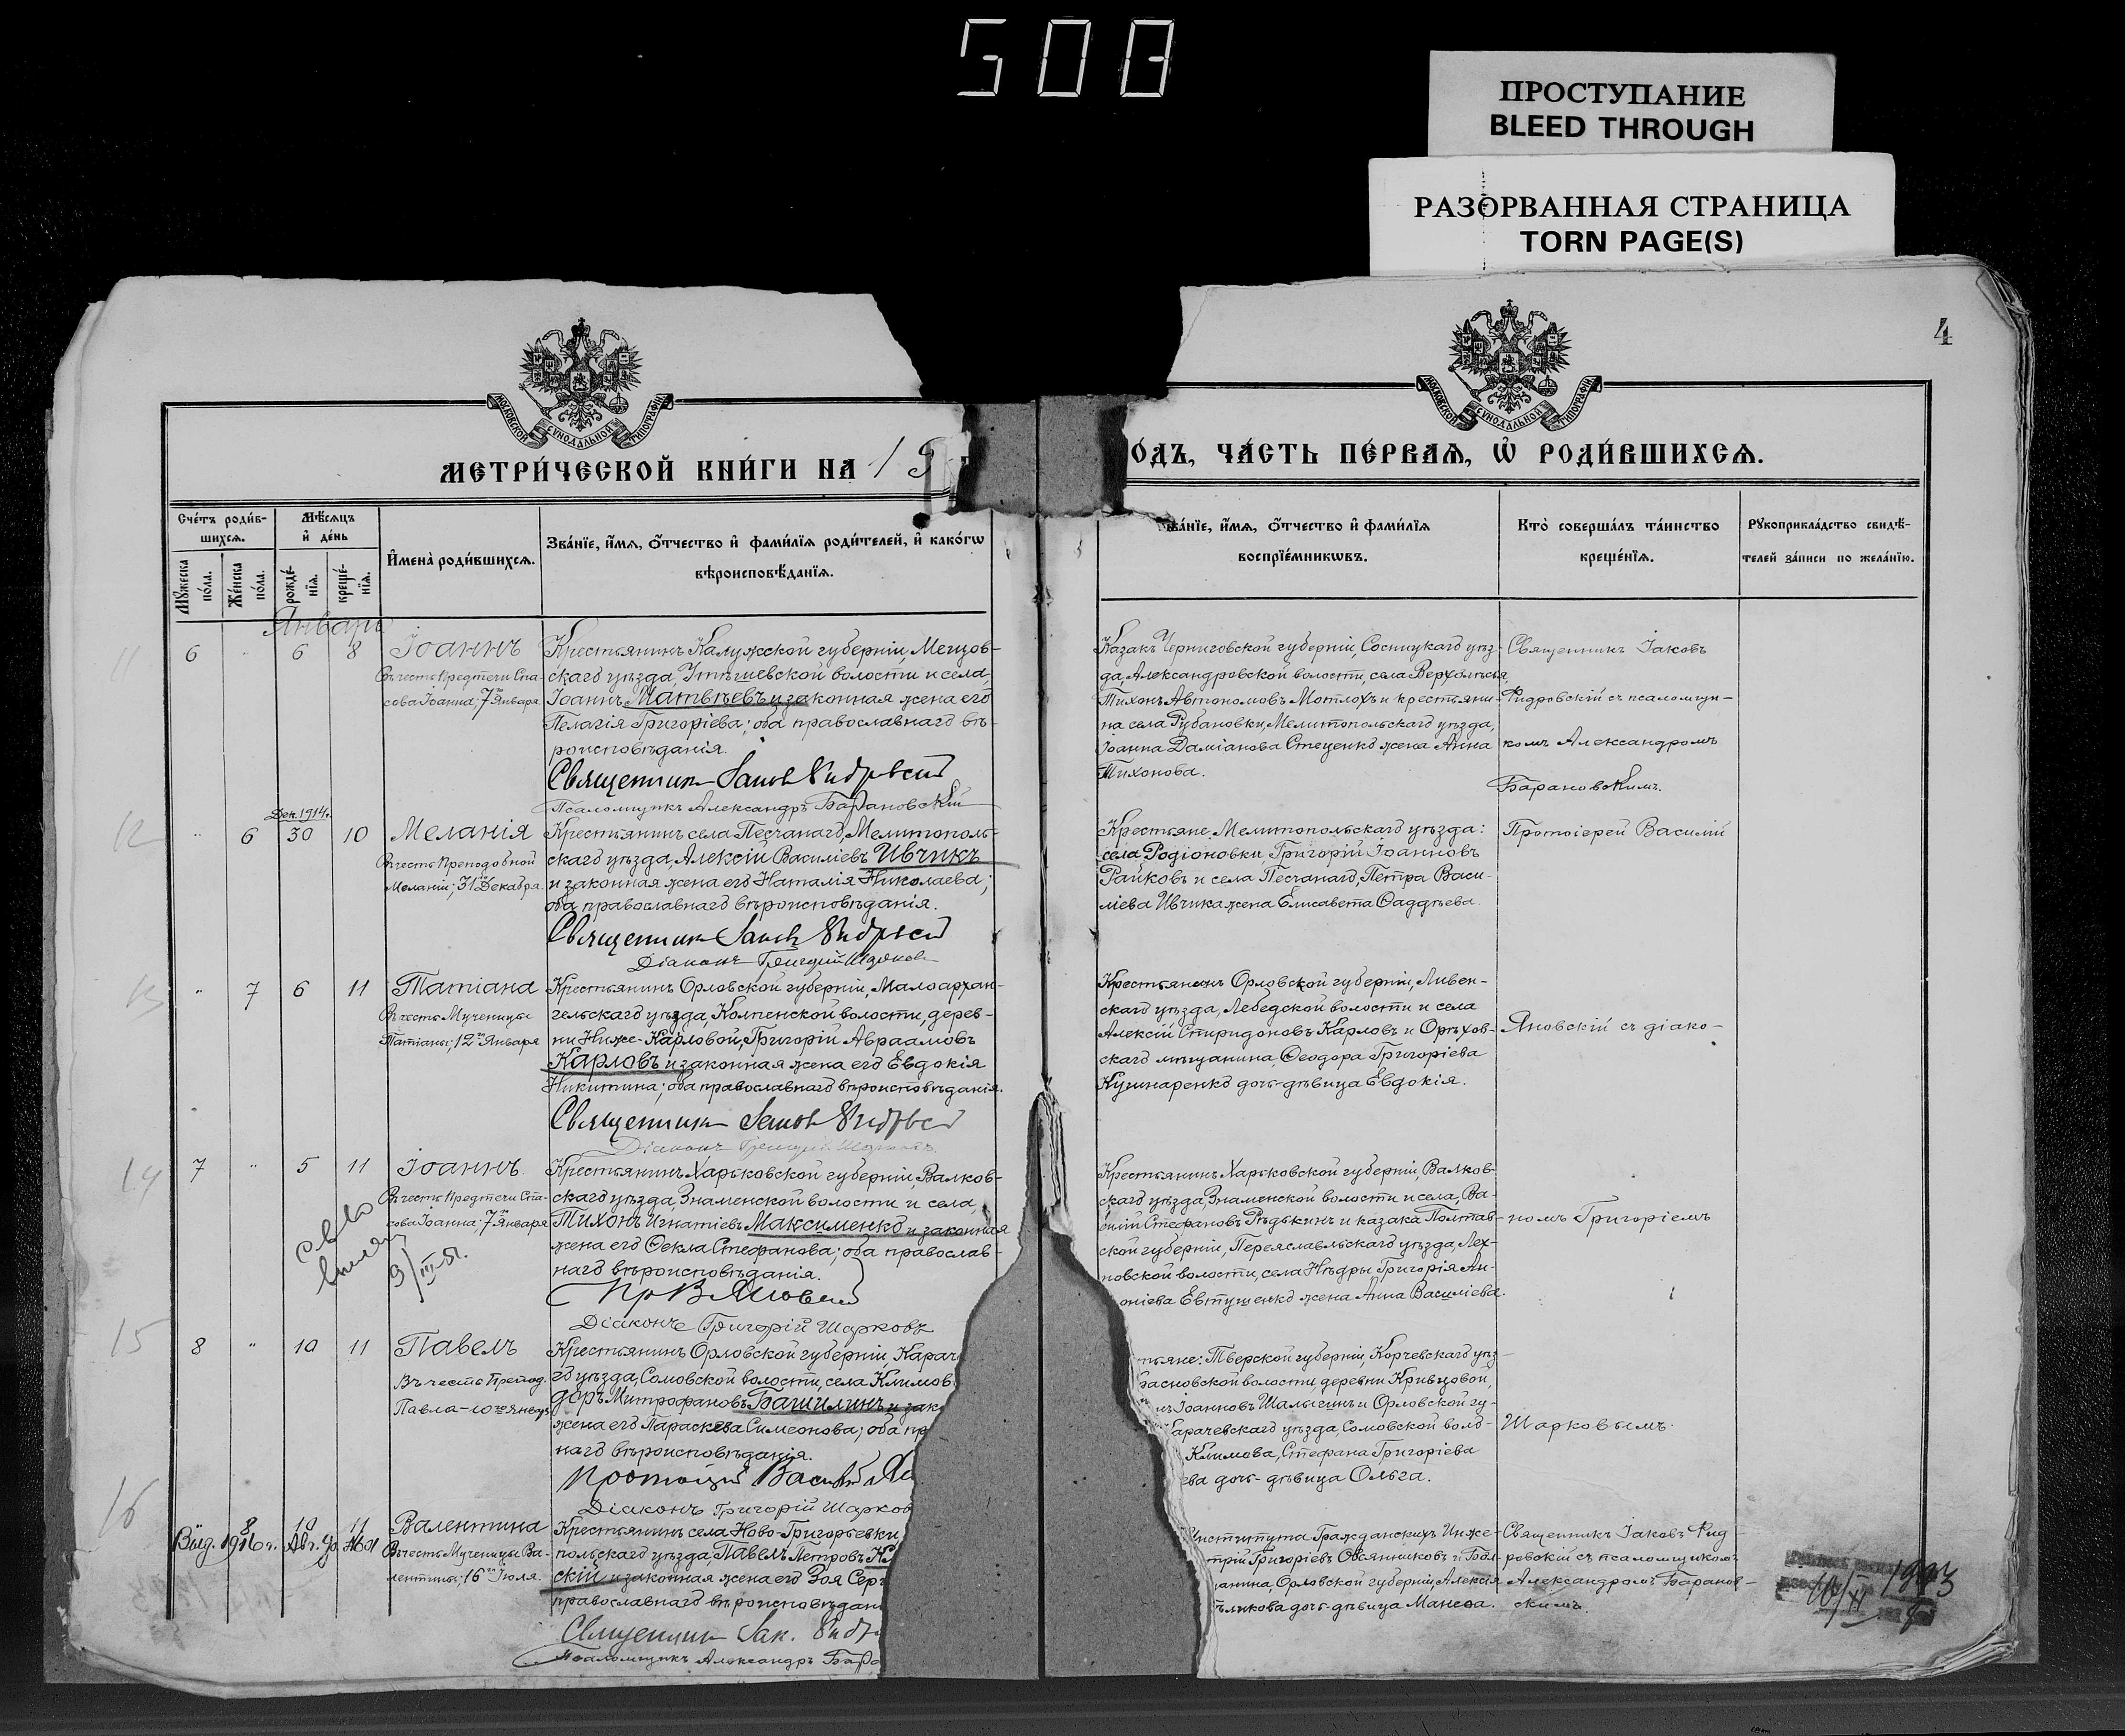 508
ПРОСТУПАНИЕ
BLEED THROUGH
РАЗОРВАННАЯ СТРАНИЦА
TORN PAGE(S)
4
МОСКОВСКОЙ СУНОДАЛЬНОЙ ТИПОГРАФІИ
МОСКОВСКОЙ СУНОДАЛЬНОЙ ТИПОГРАФІИ
МЕТРИ́ЧЕСКОЙ КНИ́ГИ НА 19
ОДЪ, ЧА́СТЬ ПЕ́РВАЯ, Ѡ҆ РОДИ́ВШИХСЯ.
Сче́тъ роди́в-
шихся.
Му́жеска по́ла.
Же́нска по́ла.
Мѣ́сяцъ
и҆ де́нь
рожде́-
нїя.
креще́-
нїя.
И҆мена̀ роди́вшихся.
Зва́нїе, и҆́мя, ѻ҆́тчество и҆ фами́лїя роди́телей, и҆ како́гѡ
вѣроисповѣ́данїя.
ва́нїе, и҆́мя, ѻ҆́тчество и҆ фами́лїя
воспрїе́мникѡвъ.
Кто̀ соверша́лъ та́инство
креще́нїя.
Рꙋкоприкла́дство свидѣ́-
телей за́писи по жела́нїю.
Январь
11
6 " 6 8
Іоаннъ
Въ честь Предтечи Спа-
сова Іоанна, 7го Января
Крестьянинъ Калужской губерніи, Мещов-
скаго уѣзда, Утѣшевской волости и села,
Іоаннъ Матвѣевъ и законная жена его
Пелагія Григоріева; оба православнаго вѣ-
роисповѣданія.
Священникъ Іаковъ Кидровскій
Псаломщикъ Александръ Барановскій
Казакъ Черниговской губерніи, Сосницкаго уѣз-
да, Александровской волости, села Верхолѣсья,
Тихонъ Автономовъ Мотлохъ и крестьяни-
на села Рубановки, Мелитопольскаго уѣзда,
Іоанна Даміанова Стеценко жена Анна
Тихонова.
Священникъ Іаковъ
Кидровскій съ псаломщи-
комъ Александромъ
Барановскимъ.
12
Дек. 1914 г.
" 6 30 10
Меланія
Въ честь Преподобной
Меланіи; 31го Декабря.
Крестьянинъ села Песчанаго, Мелитополь-
скаго уѣзда, Алексій Василіевъ Ивчикъ
и законная жена его Наталія Николаева;
оба православнаго вѣроисповѣданія.
Священникъ Іаковъ Кидровскій
Діаконъ Григорій Шарковъ
Крестьяне Мелитопольскаго уѣзда:
села Родіоновки, Григорій Іоанновъ
Райковъ и села Песчанаго, Петра Васи-
ліева Ивчика жена Елисавета Ѳаддѣева.
Протоіерей Василій
13
" 7 6 11
Татіана
Въ честь Мученицы
Татіаны; 12го Января
Крестьянинъ Орловской губерніи, Малоархан-
гельскаго уѣзда, Колпенской волости, дерев-
ни Ниже-Карловой, Григорій Авраамовъ
Карловъ и законная жена его Евдокія
Никитина; оба православнаго вѣроисповѣданія.
Священникъ Іаковъ Кидровскій
Діаконъ Григорій Шарковъ
Крестьянинъ Орловской губерніи, Ливен-
скаго уѣзда, Лебедской волости и села
Алексій Спиридоновъ Карловъ и Орѣхов-
скаго мѣщанина, Ѳеодора Григоріева
Кушнаренко дочь-дѣвица Евдокія.
Яновскій съ діако-
14
7 " 5 11
Іоаннъ
Въ честь Предтечи Спа-
сова Іоанна; 7го Января
9/III-51.
Крестьянинъ Харьковской губерніи, Валков-
скаго уѣзда, Знаменской волости и села,
Тихонъ Игнатіевъ Максименко и законная
жена его Ѳекла Стефанова; оба православ-
наго вѣроисповѣданія.
Пр В Яновскій
Діаконъ Григорій Шарковъ
Крестьянинъ Харьковской губерніи, Валков-
скаго уѣзда, Знаменской волости и села, Ва-
силій Стефановъ Рѣдькинъ и казака Полтав-
ской губерніи, Переяславльскаго уѣзда, Лех-
новской волости, села Нѣдры Григорія Ан-
оніева Евтушенко жена Анна Василіева.
номъ Григоріемъ
15
8 " 10 11
Павелъ
Въ честь Препод.
Павла-10го января
Крестьянинъ Орловской губерніи, Карач
го уѣзда, Соловской волости, села Климов
деръ Митрофановъ Башилинъ и зак
жена его Параскева Симеонова; оба пр
наго вѣроисповѣданія.
Протоіерей Василій Ян
Діаконъ Григорій Шарков
тьяне: Тверской губерніи, Корчевскаго уѣз-
расновской волости, деревни Кривцовой,
Іоанновъ Шалыгинъ и Орловской гу-
арачевскаго уѣзда, Соловской воло-
Климова, Стефана Григоріева
ева дочь-дѣвица Ольга.
Шарковымъ.
16
8 10 11
Выд. 1916 г. Авг.
Валентина
Въ честь Мученицы Ва-
лентины; 16го Іюля.
Крестьянинъ села Ново-Григорьевки,
польскаго уѣзда, Павелъ Петровъ
скій и законная жена его Зоя Сер
православнаго вѣроисповѣдан
Священникъ Іак. Кидр
Псаломщикъ Александръ Бара
Института Гражданскихъ Инже-
трій Григоріевъ Овсянниковъ и Бол-
анина, Орловской губерніи, Алексія
ѣликова дочь-дѣвица Манеѳа.
Священникъ Іаковъ Кид-
ровскій съ псаломщикомъ
Александромъ Баранов-
скимъ.
10/XI 1993